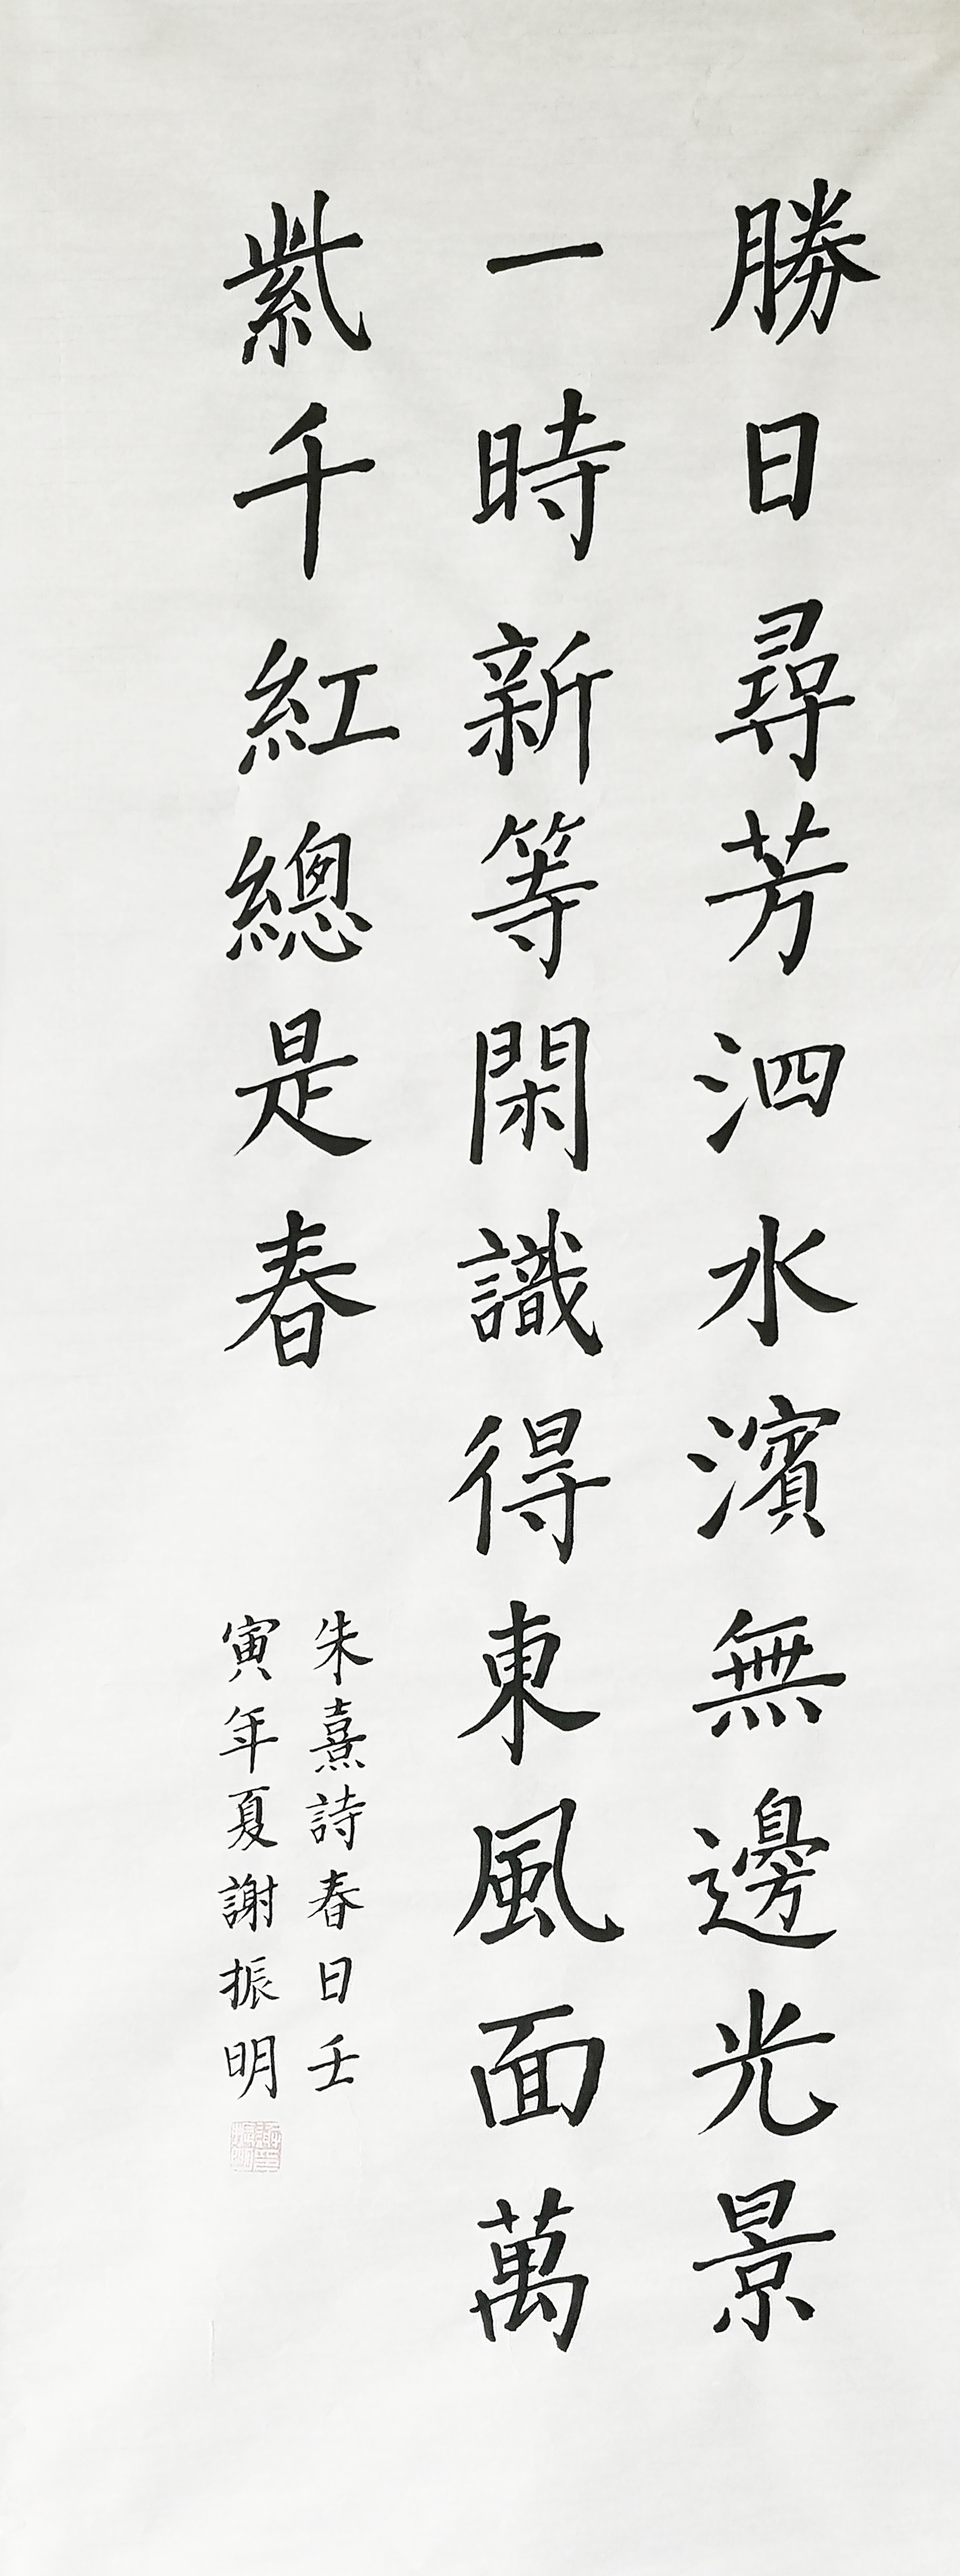 勝日尋芳泗水濱無邊光景
一時新等閑識得東風面萬
紫千紅總是春
朱熹詩春日壬
寅年夏謝振明